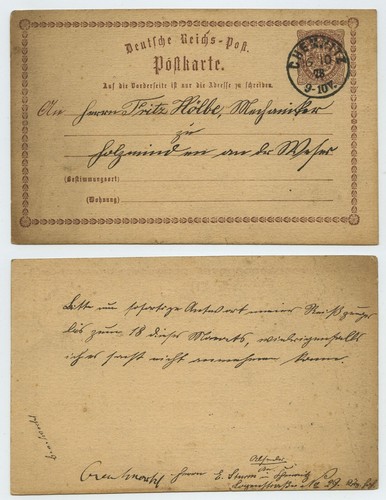 Deutsche Reichs-Post.
Postkarte.
Auf die Vorderseite ist nur die Adresse zu schreiben.
CHEMNITZ
10
9-10V.
An Herrn Fritz Hölbe, Mechaniker
zu
Holzminden an der Weser
(Bestimmungsort)
(Wohnung)
Bitte um sofortige Antwort meiner Reißzeuge
bis zum 18 dieses Monats, widrigenfalls
ich es sonst nicht annehmen kann.
Herrn E. Sturm in Chemnitz